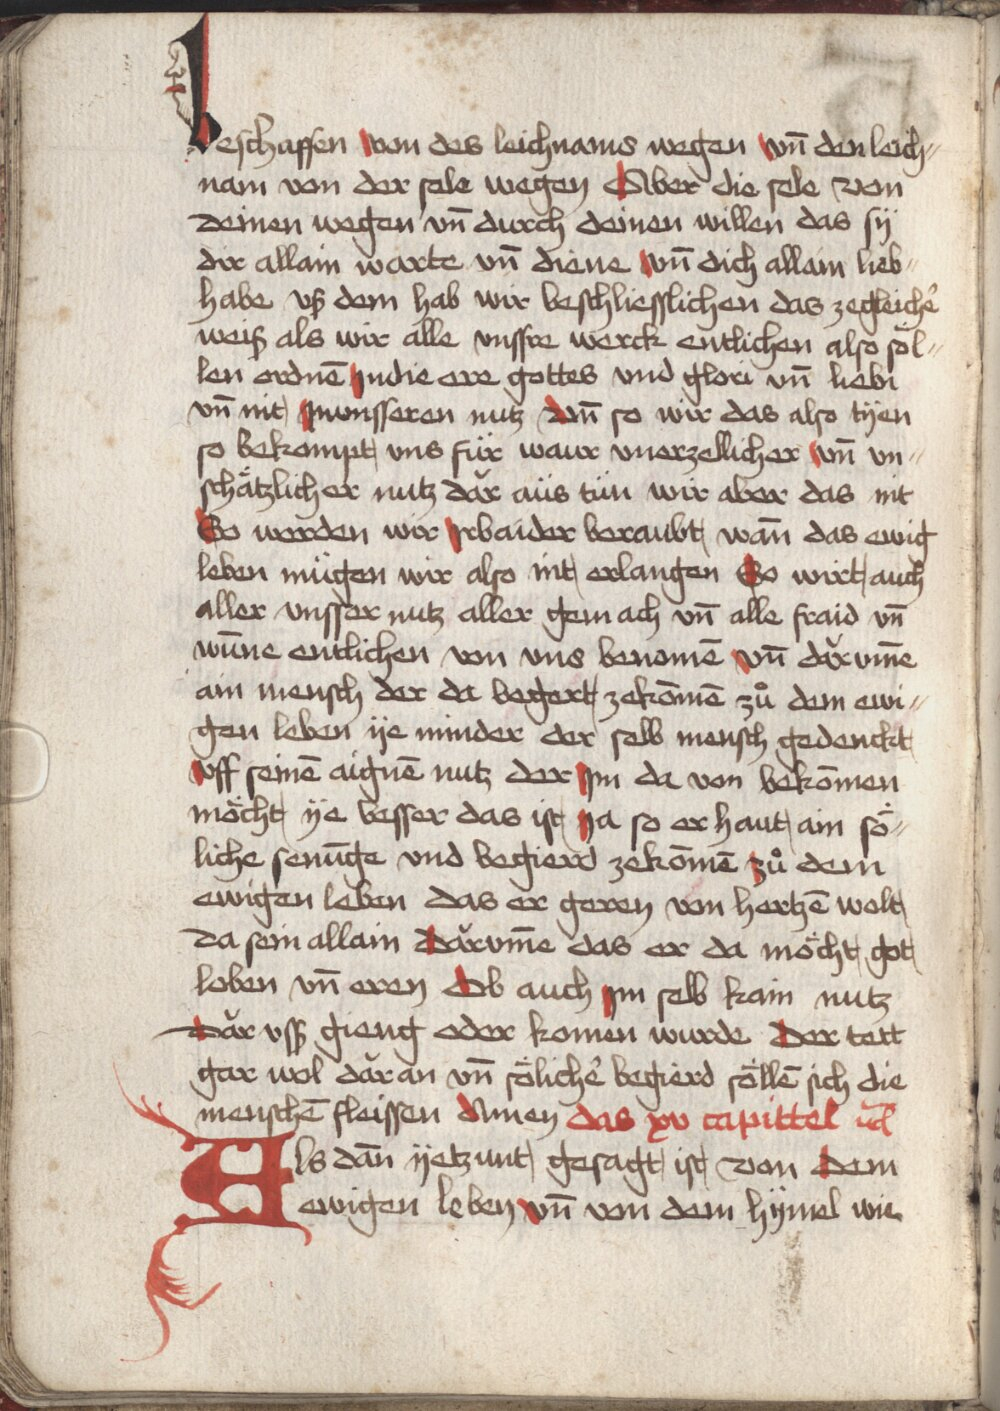 beschaffen von des leichnams wegen vn̄ den leich⸗
nam von der sele wegen Aber die sele von
deinen wegen vn̄ durch deinen willen das sÿ
dir allain warte vn̄ diene vn̄ dich allain lieb⸗
habe vß dem hab wir beschliesslichen das zegleichē
weiß als wir alle vnssre werck entlichen also söl⸗
len ordnē In die ere gottes vnd glori vn̄ liebi
vn̄ nit In vnsseren nutz Dañ so wir das also tÿen
so bekompt vns für waur vnerzellicher vn̄ vn⸗
schätzlicher nutz dăr aüs tün wir aber das nit
So werden wir Irbaider beraubt wañ das ewig
leben mügen wir also nit erlangen So wirt auch
aller vnsser nutz aller gemach vn̄ alle fraid vn̄
wūne entlichen von vns benomē vn̄ dărvm̄e
ain mensch der da begert zekōmē zů dem ewi⸗
gen leben ÿe minder der selb mensch gedenckt
vff seinē aignē nutz der Im da von bekōmen
möcht ÿe besser das ist Ja so er haut ain sö⸗
liche senūge vnd begierd zekōmē zů dem
ewigen leben das er geren von hertzē wolt
da sein allain Dărvm̄e das er da möcht got
loben vn̄ eren Ob auch Im selb kain nutz
Dăr vsß gieng oder komen wurde Der tett
gar wol dăr an vn̄ sölichē begierd söllē sich die
menschē fleissen Amen das xv capittel
Als dañ ÿetzunt gesagt ist von dem
ewigen leben vn̄ von dem hÿmel wie